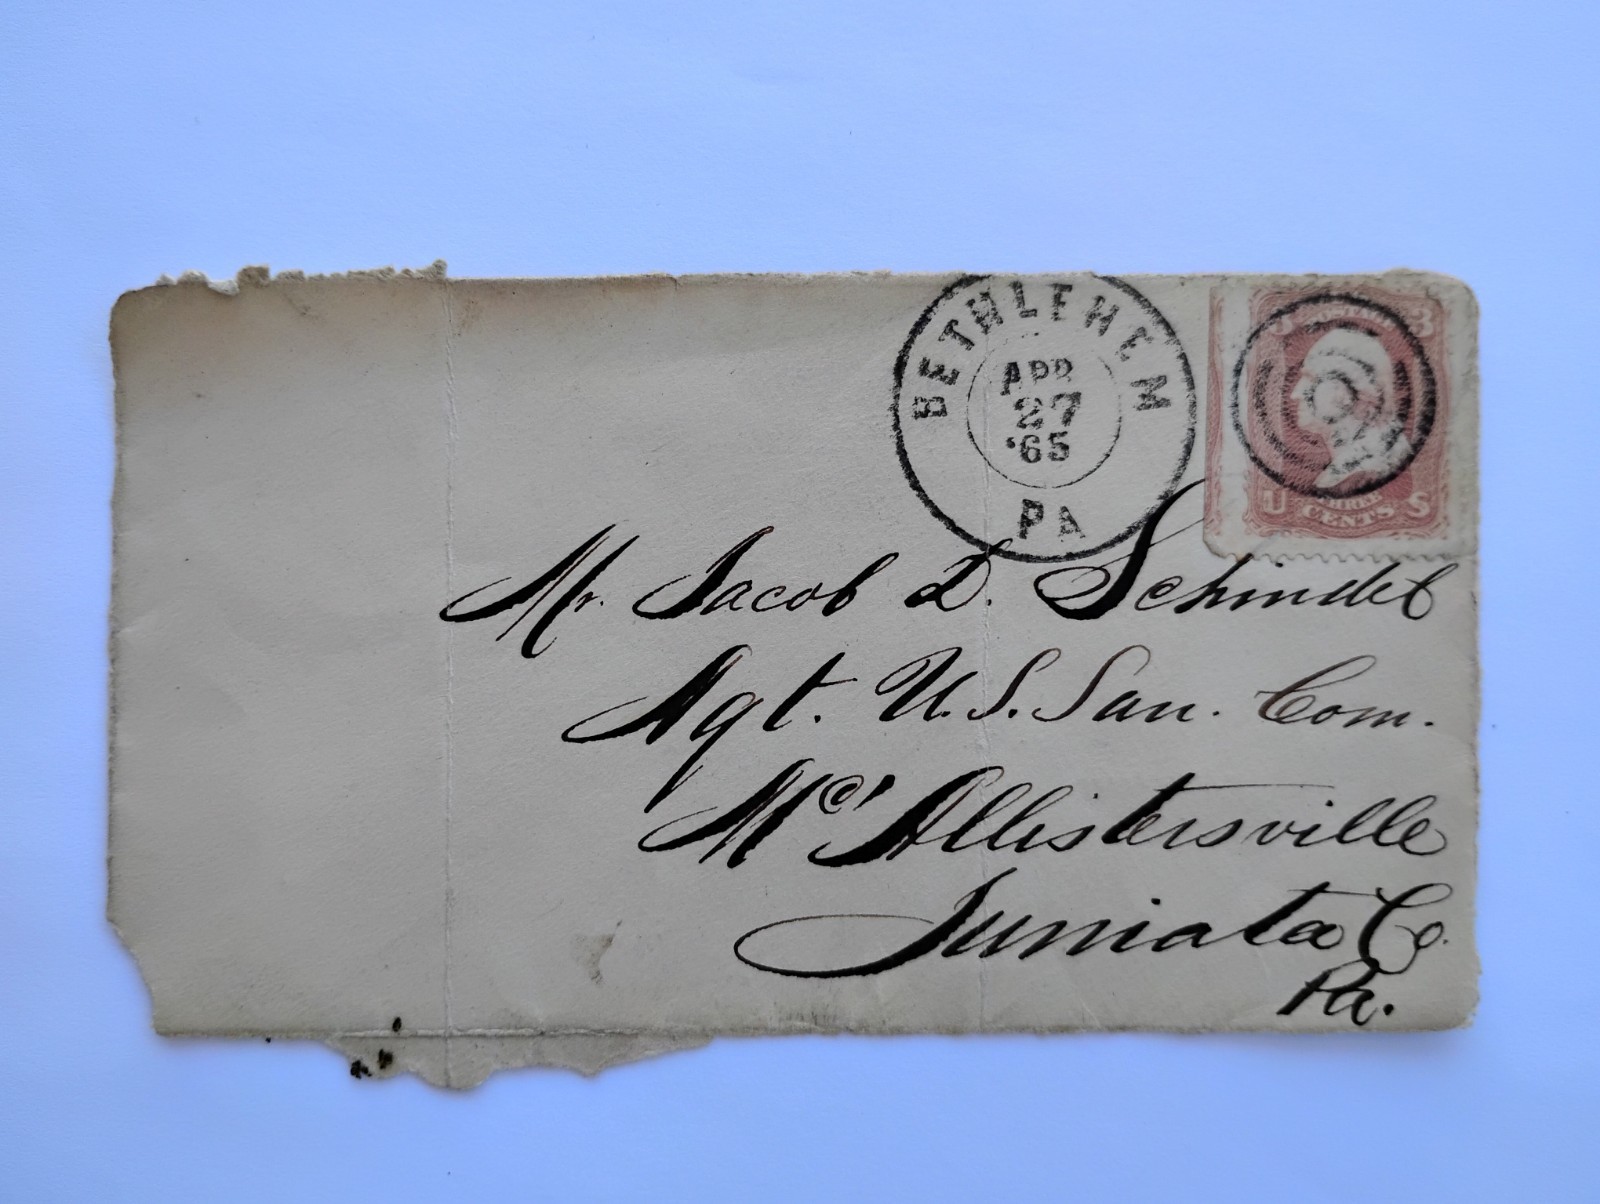 BETHLEHEM
APR
27
'65
PA
U THREE S
CENTS
Mr. Jacob D. Schindel
Agt. U.S. San. Com.
Mc'Allistersville
Juniata Co.
Pa.